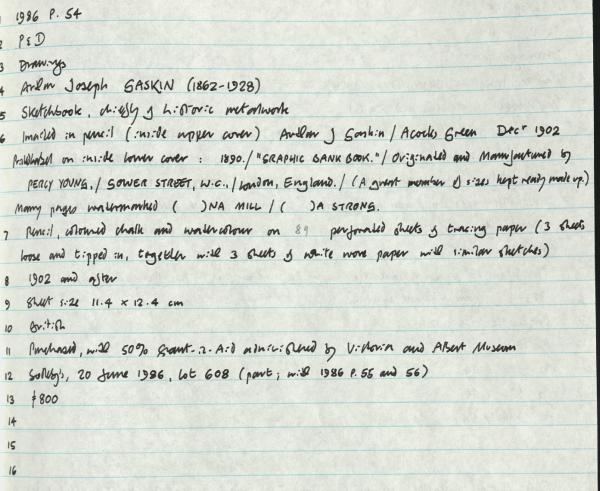 1 1986 P. 54
2 P&D
3 Drawings
4 Arthur Joseph GASKIN (1862-1928)
5 Sketchbook, chiefly of historic metalwork
6 Inscribed in pencil (inside upper cover) Arthur J Gaskin / Acocks Green Decr 1902
Printed label on inside lower cover : 1890. / "GRAPHIC BANK BOOK." / Originated and Manufactured by
PERCY YOUNG, / GOWER STREET, W.C., / London, England. / (A great number of sizes kept ready made up.)
Many pages watermarked ( )NA MILL / ( )A STRONG.
7 Pencil, coloured chalk and watercolour on 89 perforated sheets of tracing paper (3 sheets
loose and tipped in, together with 3 sheets of white wove paper with similar sketches)
8 1902 and after
9 Sheet size 11.4 x 12.4 cm
10 British
11 Purchased, with 50% Grant-in-Aid administered by Victoria and Albert Museum
12 Sotheby's, 20 June 1986, lot 608 (part; with 1986 P. 55 and 56)
13 £800
14
15
16